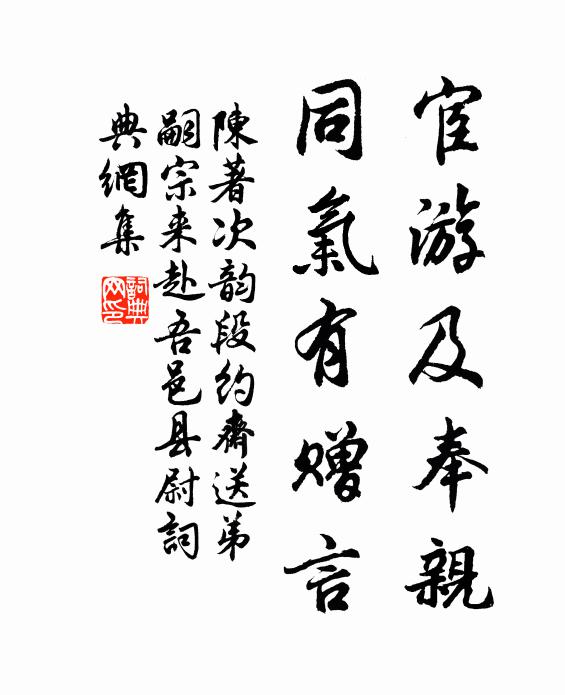 宦游及奉親
同氣有赠言
陳著次韵段约齋送弟
嗣宗来赴吾邑县尉詞
典網集
詞典网印